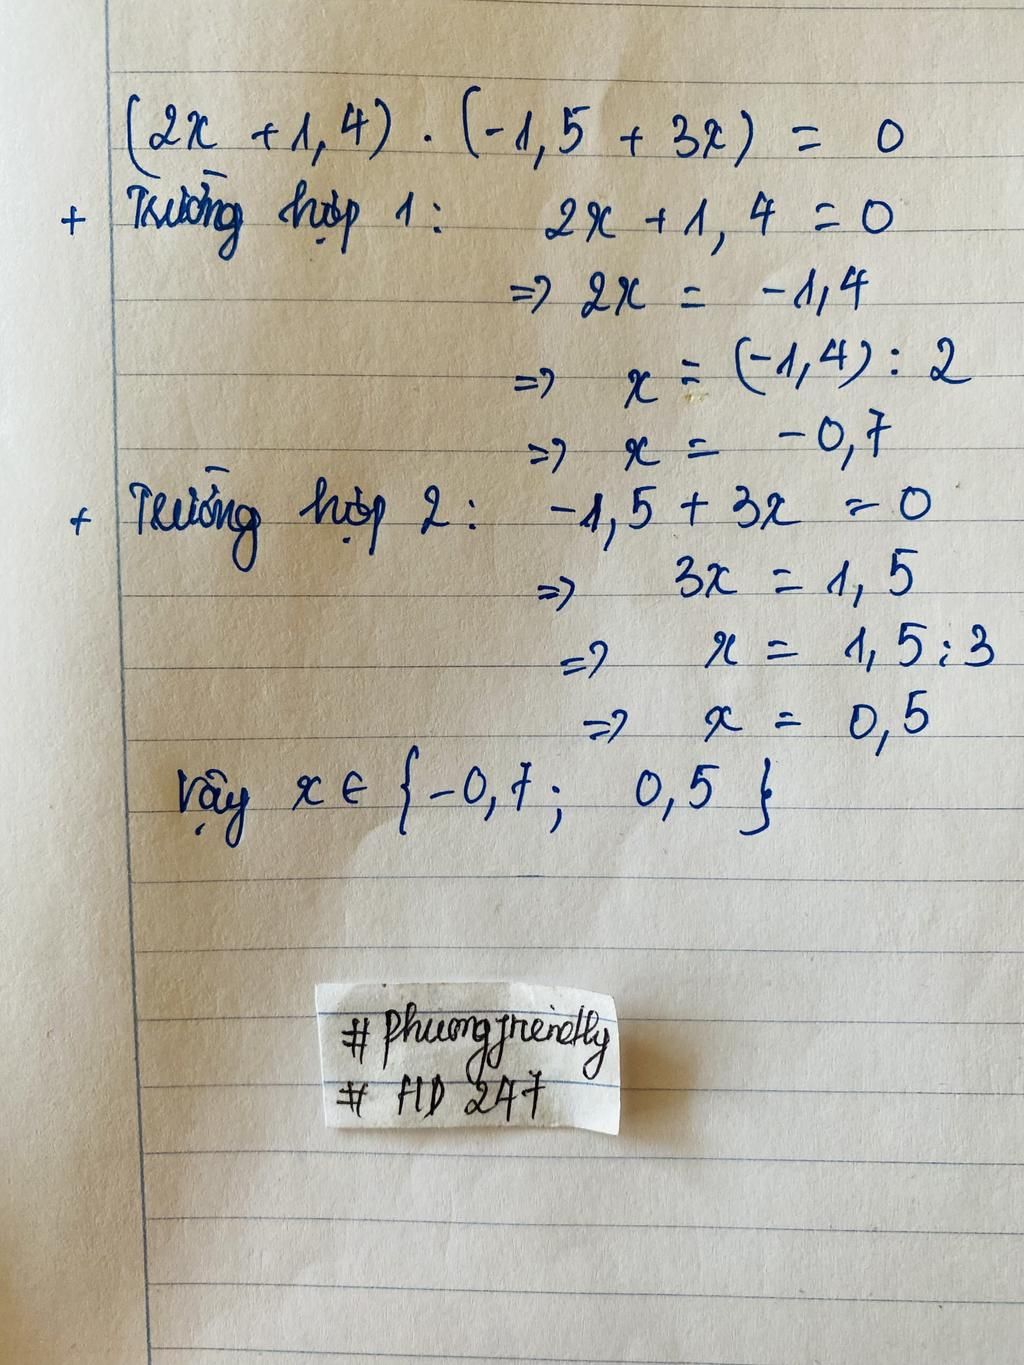 (2x + 1,4) . (-1,5 + 3x) = 0
+ Trường hợp 1: 2x + 1,4 = 0
=> 2x = -1,4
=> x = (-1,4) : 2
=> x = -0,7
+ Trường hợp 2: -1,5 + 3x = 0
=> 3x = 1,5
=> x = 1,5 : 3
=> x = 0,5
Vậy x ∈ {-0,7; 0,5}
# phuongfriendly
# HD 247